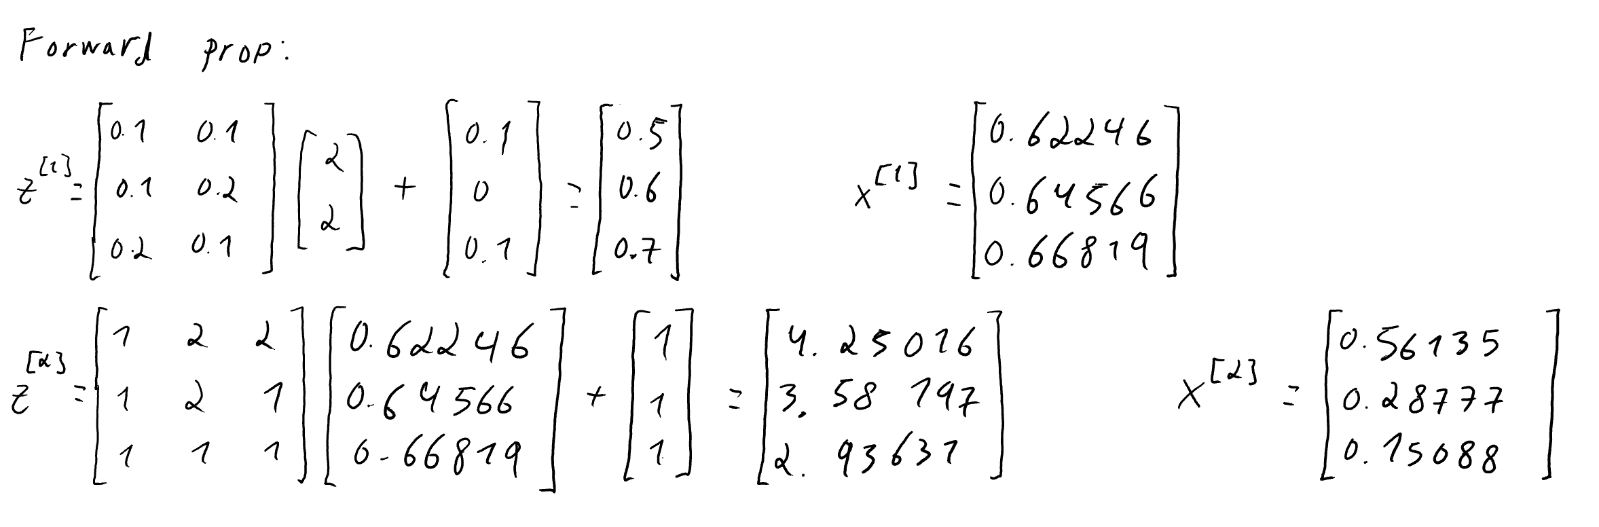 Forward prop:
z^[1] = [0.1 0.1; 0.1 0.2; 0.2 0.1] [2; 2] + [0.1; 0; 0.1] = [0.5; 0.6; 0.7] x^[1] = [0.62246; 0.64566; 0.66819]
z^[2] = [1 2 2; 1 2 1; 1 1 1] [0.62246; 0.64566; 0.66819] + [1; 1; 1] = [4.25016; 3.58197; 2.93631] x^[2] = [0.56135; 0.28777; 0.15088]